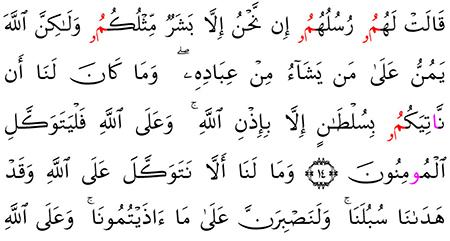 قَالَتْ لَهُمُۥ رُسُلُهُمُۥٓ إِن نَّحْنُ إِلَّا بَشَرٌ مِّثْلُكُمُۥ وَلَٰكِنَّ ٱللَّهَ
يَمُنُّ عَلَىٰ مَن يَشَآءُ مِنْ عِبَادِهِۦ ۖ وَمَا كَانَ لَنَا أَن
نَّاتِيَكُمُۥ بِسُلْطَٰنٍ إِلَّا بِإِذْنِ ٱللَّهِ ۚ وَعَلَى ٱللَّهِ فَلْيَتَوَكَّلِ
ٱلْمُومِنُونَ ﴿١٤﴾ وَمَا لَنَا أَلَّا نَتَوَكَّلَ عَلَى ٱللَّهِ وَقَدْ
هَدَىٰنَا سُبُلَنَا ۚ وَلَنَصْبِرَنَّ عَلَىٰ مَا ءَاذَيْتُمُونَا ۚ وَعَلَى ٱللَّهِ